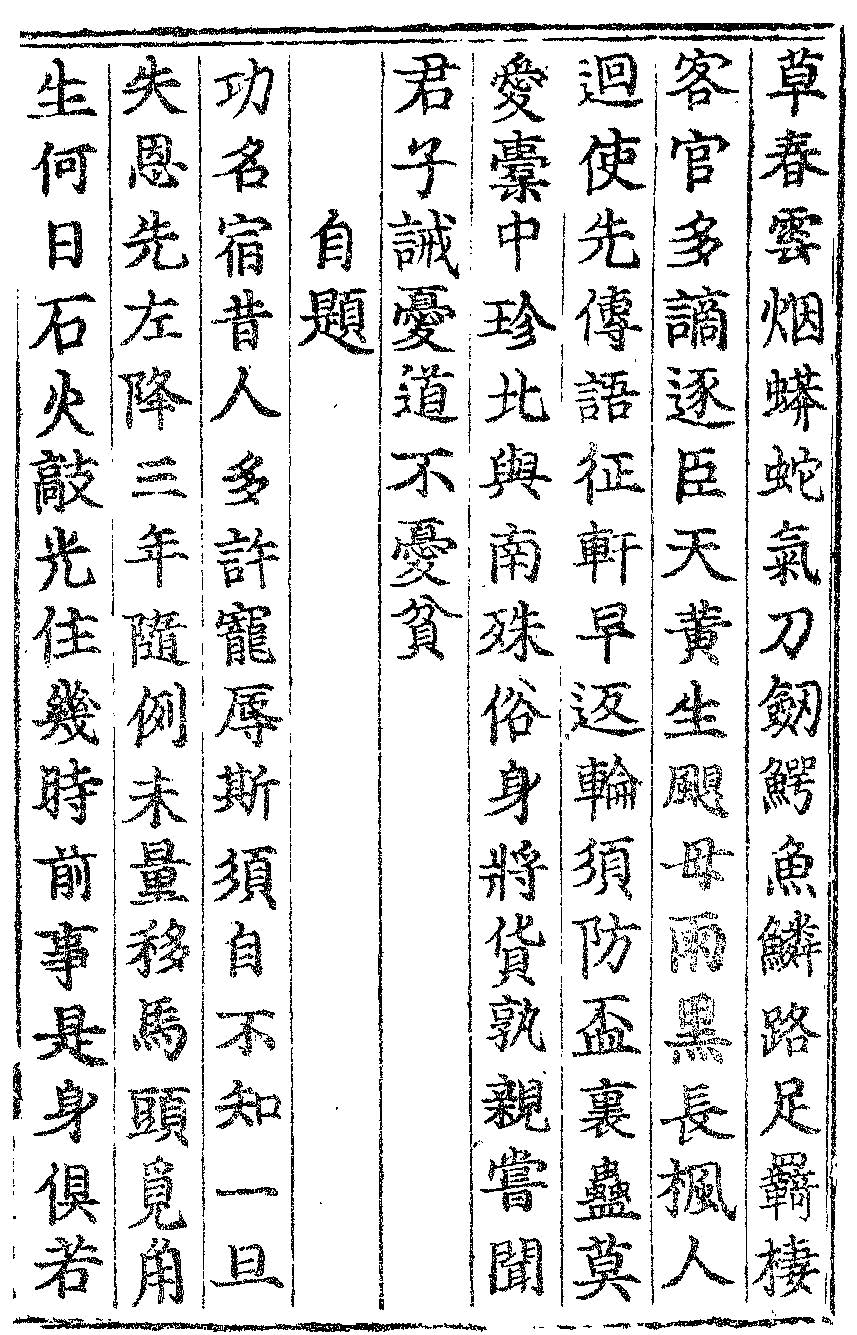 草春雲烟蟒蛇氣刀劔鰐魚鱗路足羈棲
客官多謫逐臣天黃生颶母雨黑長楓人
迴使先傳語征軒早返輪須防盃裏蠱莫
愛橐中珍北與南殊俗身將貨孰親嘗聞
君子誡憂道不憂貧
自題
功名宿昔人多許寵辱斯須自不知一旦
失恩先左降三年隨例未量移馬頭覓角
生何日石火敲光住幾時前事是身俱若